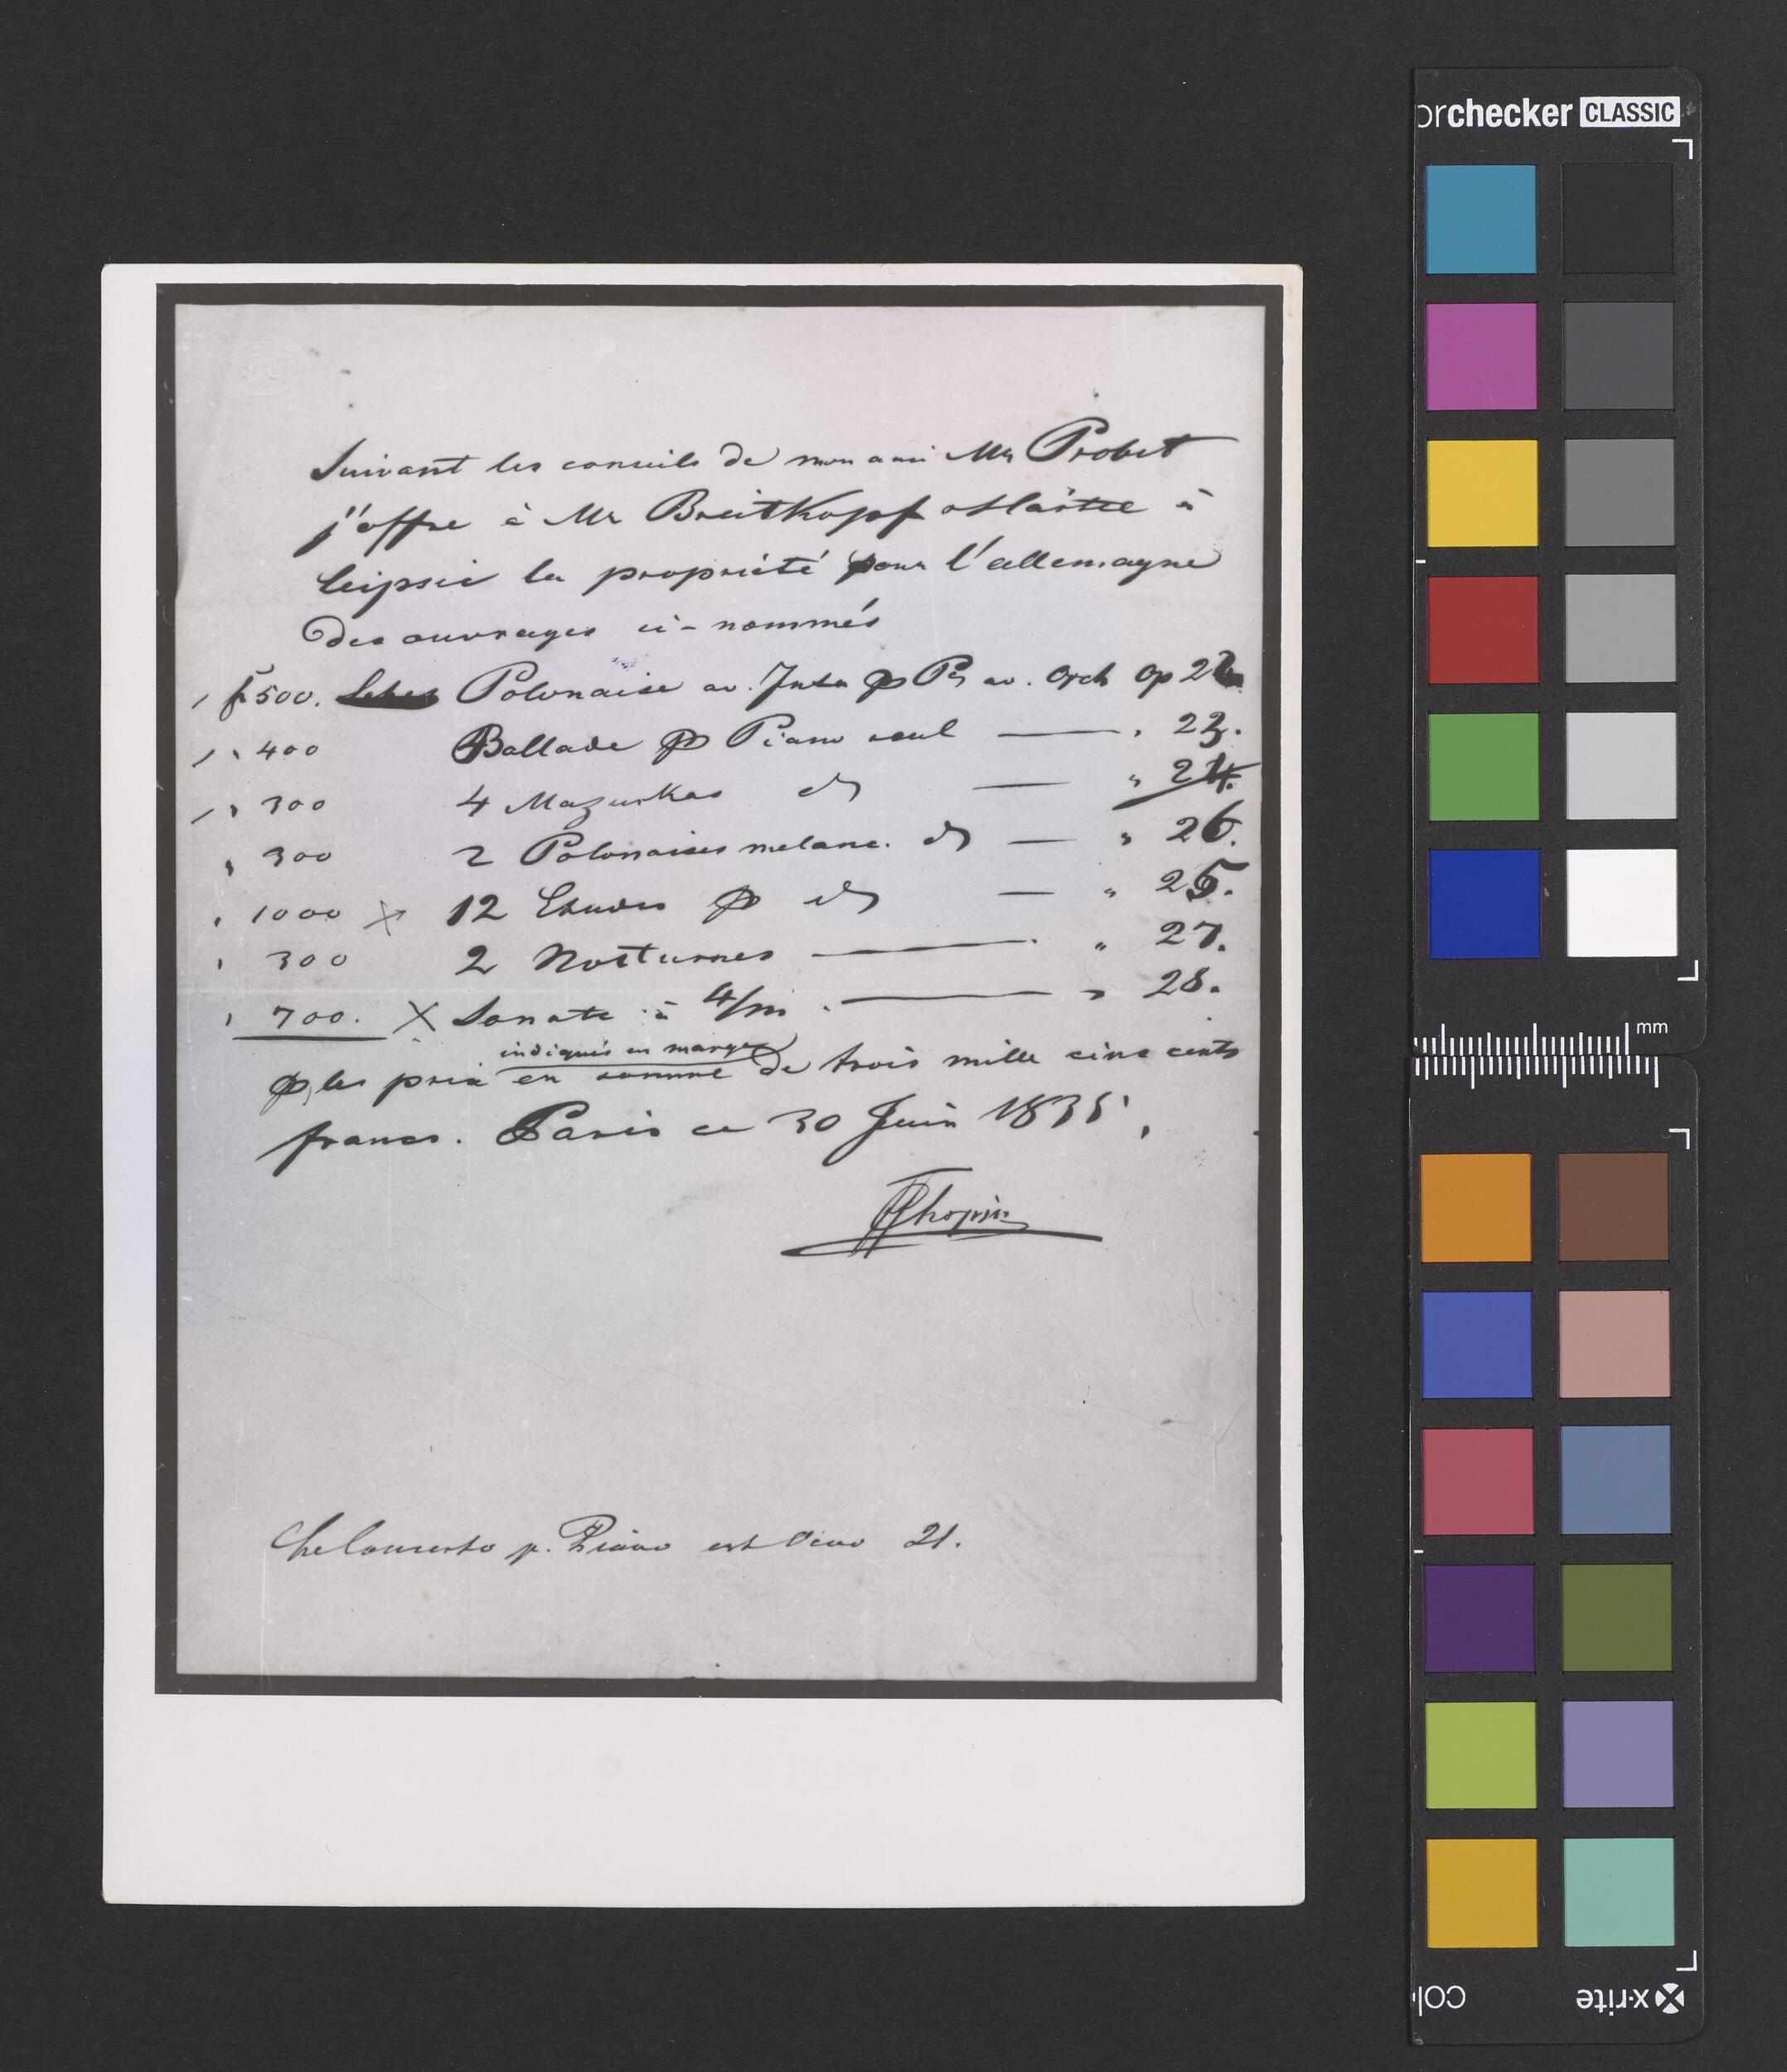 Suivant les conseils de mon ami Mr Probst
j'offre à Mr Breitkopf et Härtel à
Leipsic la propriété pour l'allemagne
des ouvrages ci-nommés
f 500. Polonaise av. Intr p P av. Orch Op 22
" 400 Ballade p Piano seul — " 23.
" 300 4 Mazurkas d — " 24.
" 300 2 Polonaises melanc. d — " 26.
" 1000 x 12 Etudes p d — " 25.
" 300 2 Nocturnes — " 27.
" 700. X Sonate à 4/m. — " 28.
indiqués en marge
p les prix en somme de trois mille cinc cents
francs. Paris ce 30 Juin 1835.
FChopin
Le Concerto p. Piano est Oeuv 21.
orchecker CLASSIC
mm
col
x-rite